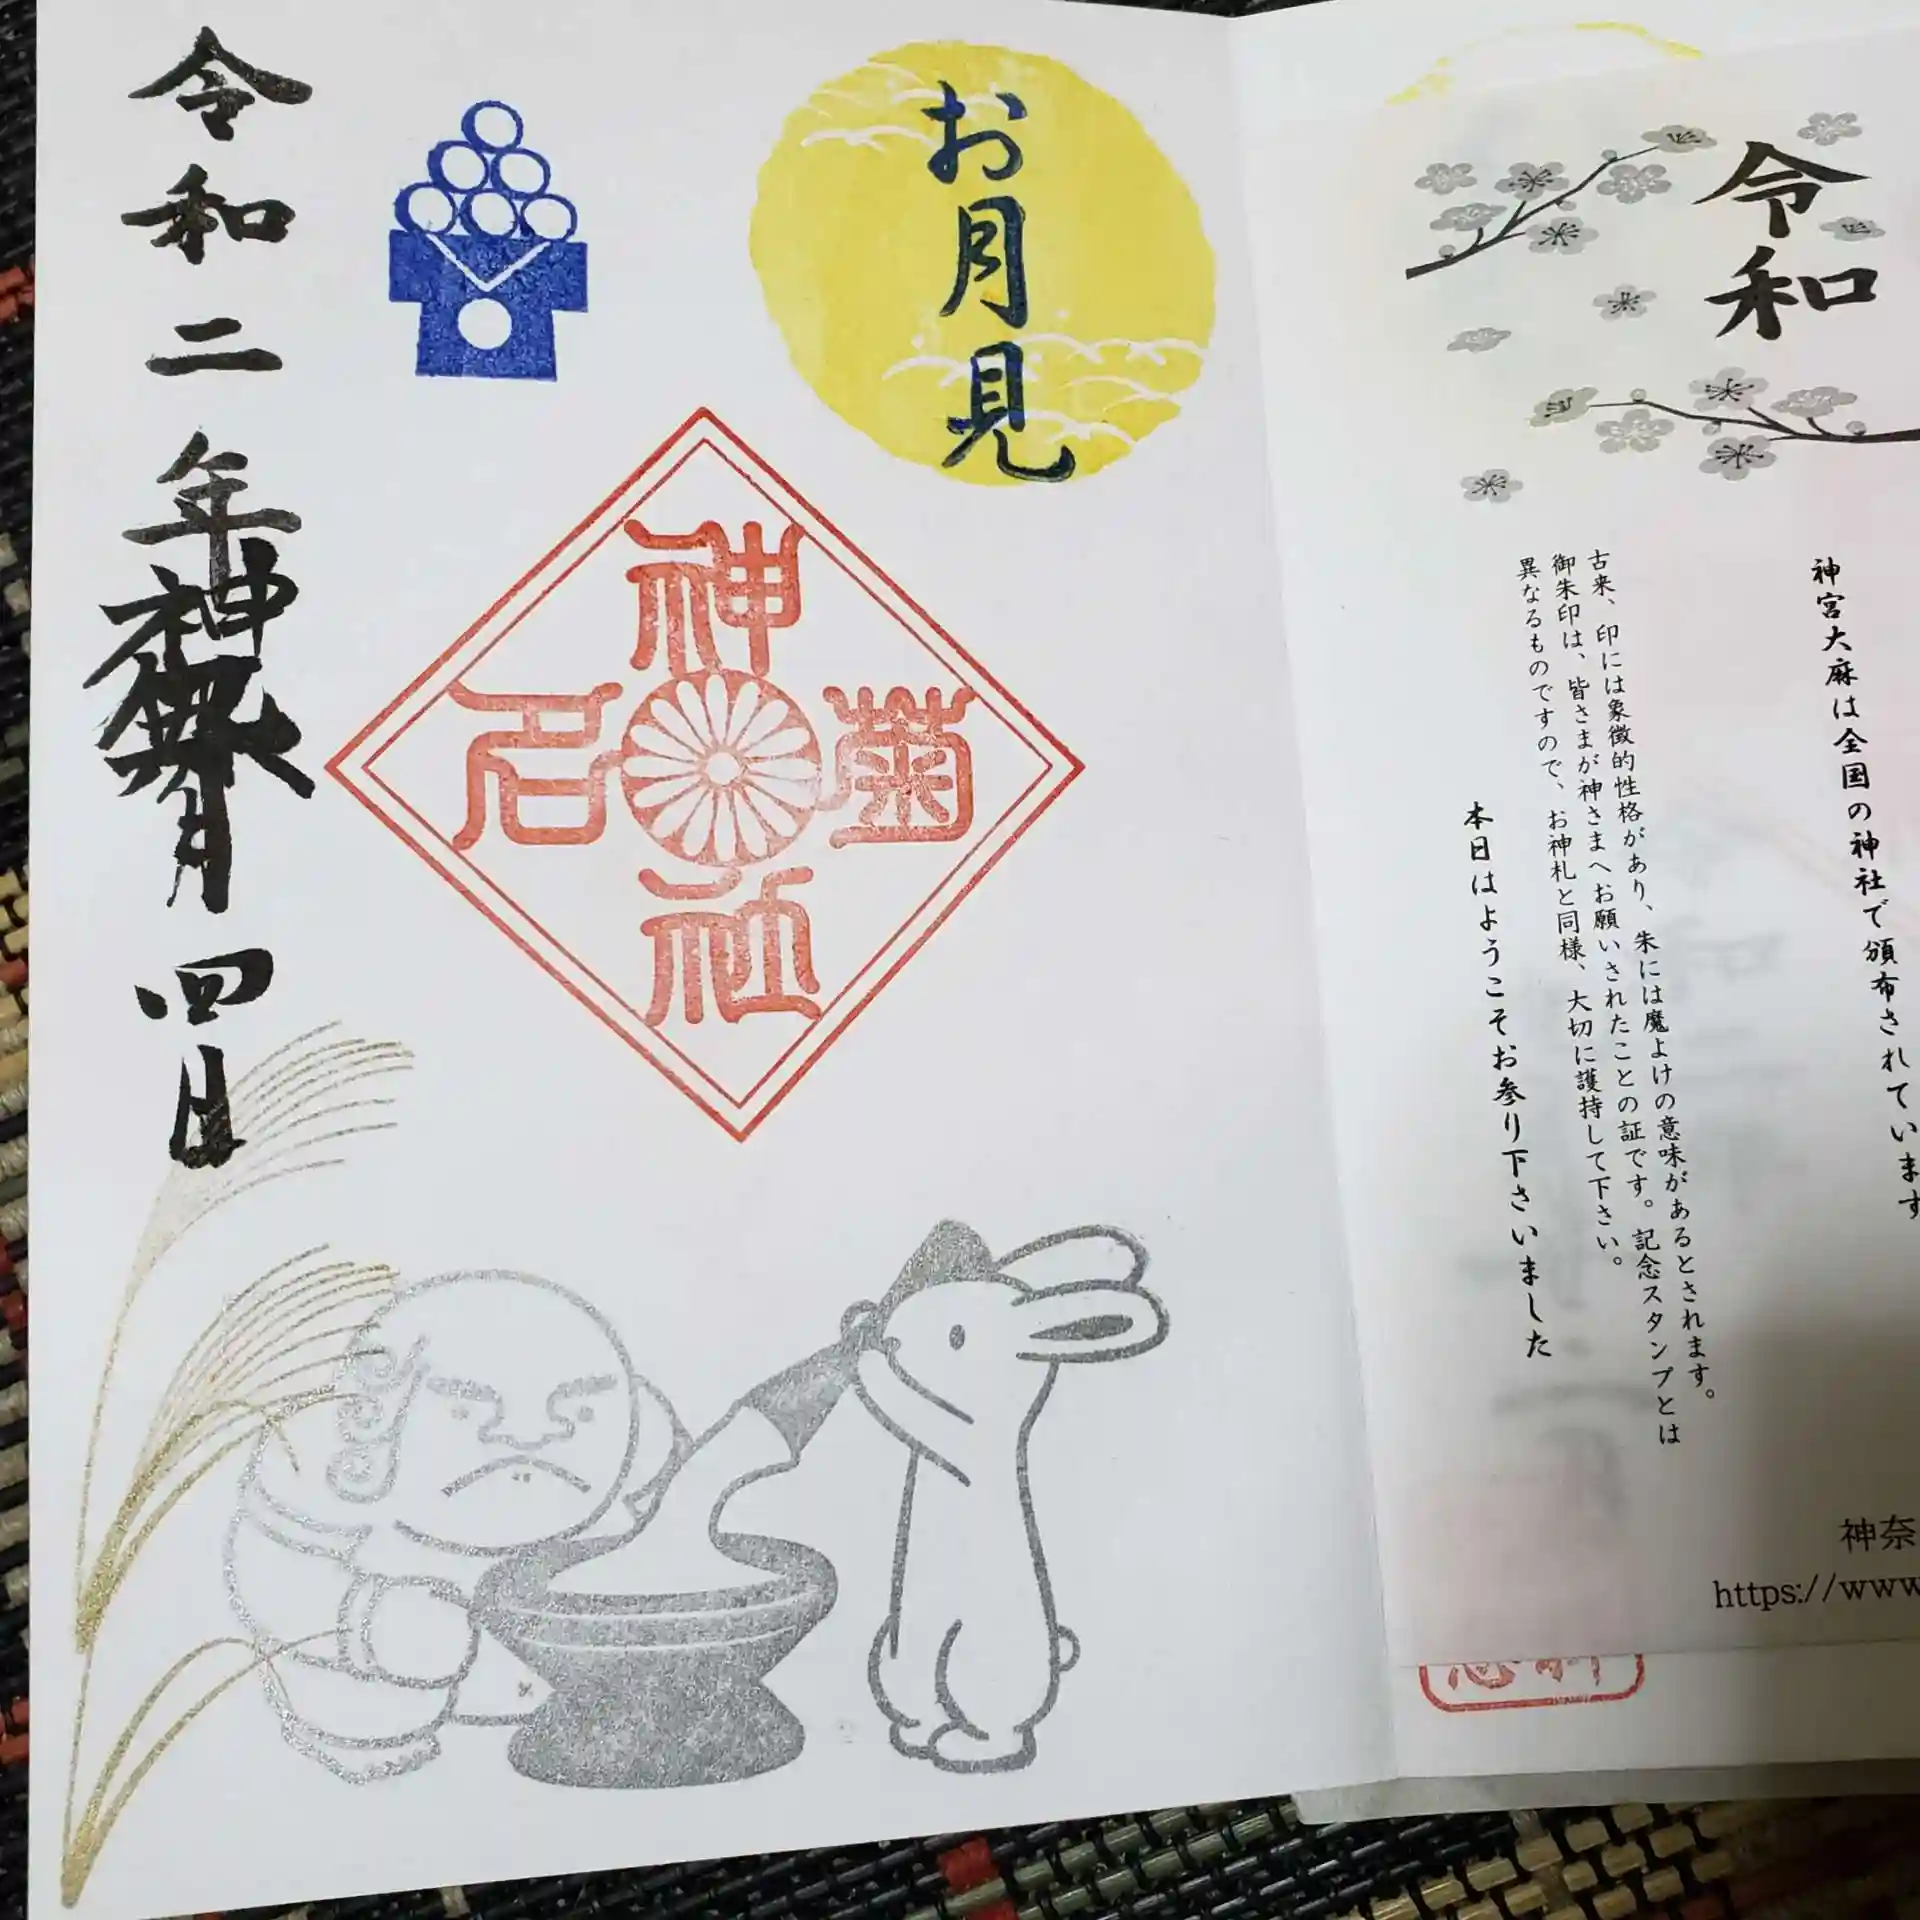 令和
神宮大麻は全国の神社で頒布されています
古来、印には象徴的性格があり、朱には魔よけの意味があるとされます。
御朱印は、皆さまが神さまへお願いされたことの証です。記念スタンプとは
異なるものですので、お神札と同様、大切に護持して下さい。
本日はようこそお参り下さいました
神奈
https://www
お月見
神
菊名
社
令和二年神無月四日